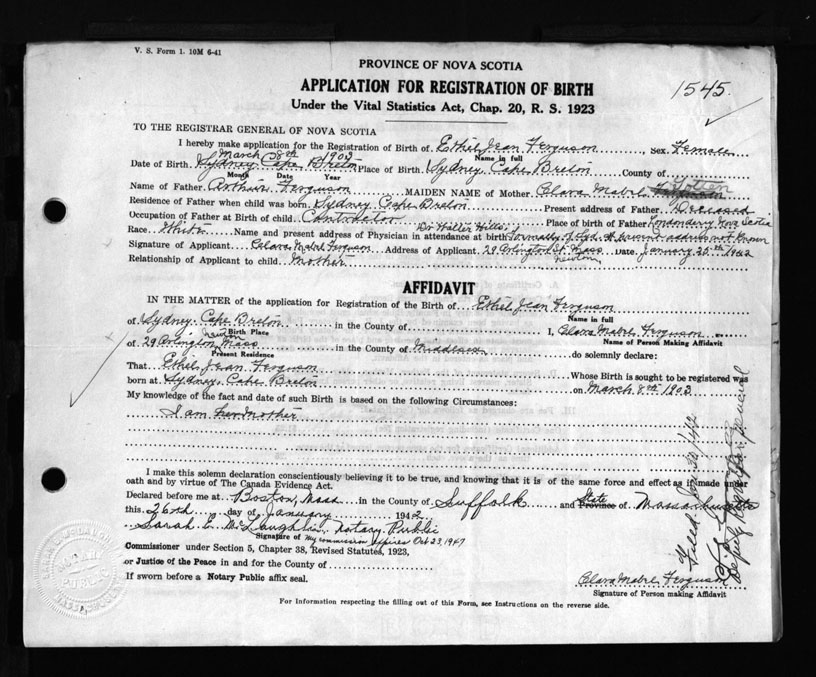 V. S. Form 1. 10M 6-41
PROVINCE OF NOVA SCOTIA
APPLICATION FOR REGISTRATION OF BIRTH
1545.
Under the Vital Statistics Act, Chap. 20, R. S. 1923
TO THE REGISTRAR GENERAL OF NOVA SCOTIA
I hereby make application for the Registration of Birth of Ethel Jean Ferguson, Sex Female
Name in full
March 8th 1903
Date of Birth Sydney Cape Breton Place of Birth Sydney Cape Breton County of
Month Date Year
Name of Father Arthur Ferguson MAIDEN NAME of Mother Clara Mabel Totten
Residence of Father when child was born Sydney Cape Breton Present address of Father Deceased
Occupation of Father at Birth of child Contractor Place of birth of Father Nova Scotia
Race White Name and present address of Physician in attendance at birth Dr Walter Hills; formerly of Syd. At present address not known
Signature of Applicant Clara Mabel Ferguson Address of Applicant 29 Arlington St. Newton Mass Date January 25th 1942
Relationship of Applicant to child Mother
AFFIDAVIT
IN THE MATTER of the application for Registration of the Birth of Ethel Jean Ferguson
Name in full
of Sydney Cape Breton in the County of I, Clara Mabel Ferguson
Birth Place Name of Person Making Affidavit
of 29 Arlington Newton Mass in the County of Middlesex do solemnly declare:
Present Residence
That Ethel Jean Ferguson Whose Birth is sought to be registered was
born at Sydney, Cape Breton on March 8th 1903
My knowledge of the fact and date of such Birth is based on the following Circumstances:
I am her mother
I make this solemn declaration conscientiously believing it to be true, and knowing that it is of the same force and effect as if made under
oath and by virtue of The Canada Evidence Act.
Declared before me at Boston, Mass in the County of Suffolk and State Province of Massachusetts
this 26th day of January 1942
Sarah E. McLaughlin, Notary Public
Signature of My commission expires Oct 23, 1947
Commissioner under Section 5, Chapter 38, Revised Statutes, 1923,
or Justice of the Peace in and for the County of
If sworn before a Notary Public affix seal.
Clara Mabel Ferguson
Signature of Person making Affidavit
For Information respecting the filling out of this Form, see Instructions on the reverse side.
Deputy Registrar General